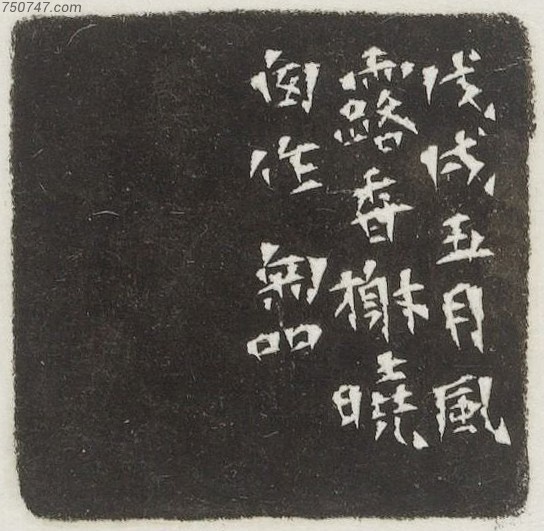 750747.com
戊戌五月風
露香榭曉
囱作